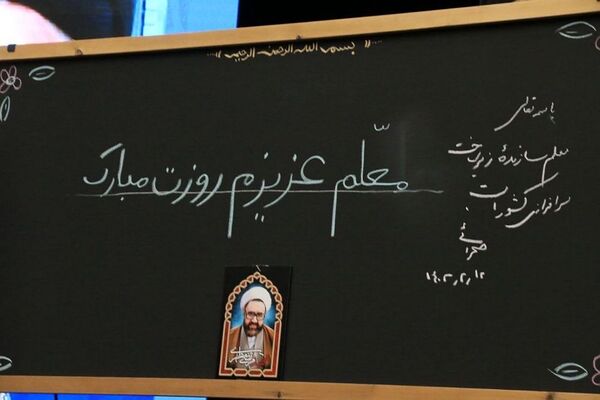 بسم الله الرحمن الرحیم
معلّم عزیزم روزت مبارک
باسمه تعالی
معلم سازندهٔ زیرساخت
سرافرازی کشور است
صحرائی
۱۴۰۳٫۲٫۱۲